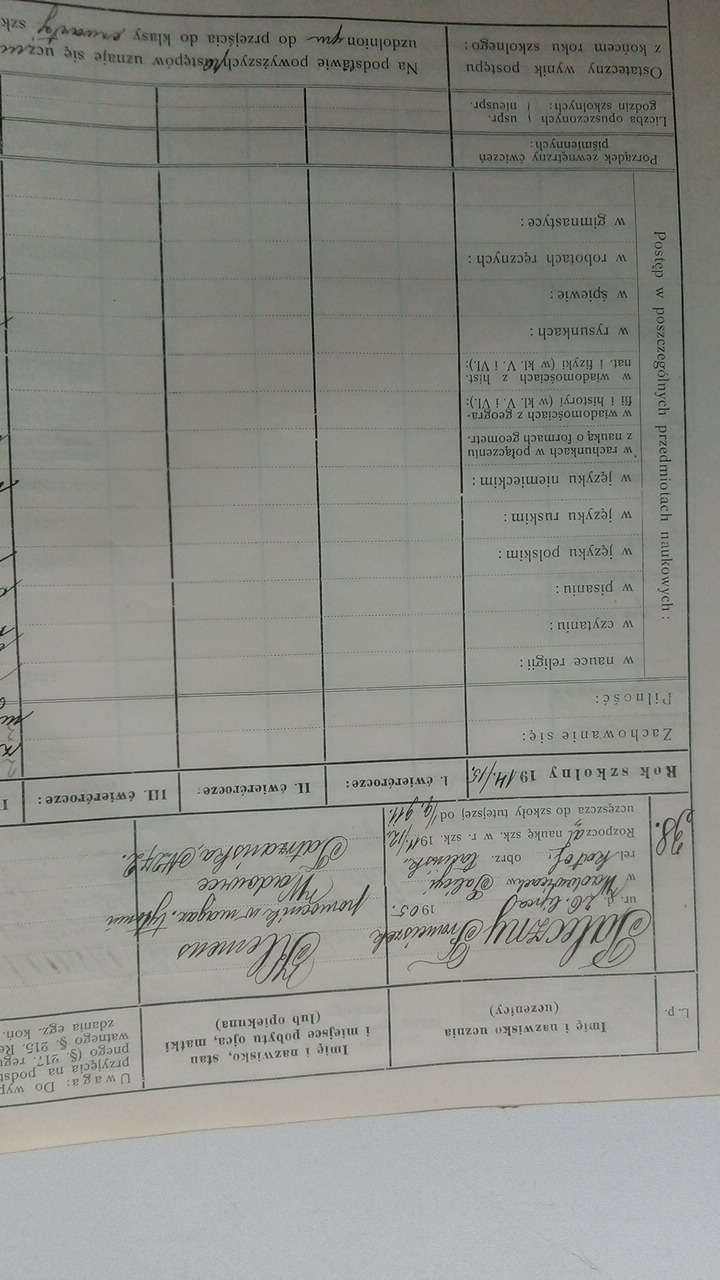 L. p.
Imię i nazwisko ucznia
(uczenicy)
Imię i nazwisko, stan
i miejsce pobytu, ojca, matki
(lub opiekuna)
Uwaga: Do wyp
przyjęcia na podst
pnego (§. 217. regu
watnego §. 215. Re
zdania egz. koń.
38.
Paleczny Franciszek
ur. d. 26. lipca 1905.
w Wadowicach w Galicyi
rel. katol. obrz. łacińsk.
Rozpoczął naukę szk. w r. szk. 1911/12.
uczęszcza do szkoły tutejszej od 1/9. 911.
Klemens
pomocnik w magaz. tytoniu
Wadowice
Tatrzańska,
Rok szkolny 1914/15.
I. ćwierćrocze:
II. ćwierćrocze:
III. ćwierćrocze:
Zachowanie się:
Pilność:
Postęp w poszczególnych przedmiotach naukowych:
w nauce religii:
w czytaniu:
w pisaniu:
w języku polskim:
w języku ruskim:
w języku niemieckim:
w rachunkach w połączeniu
z nauką o formach geometr.
w wiadomościach z geogra-
fii i historyi (w kl. V. i VI.):
w wiadomościach z hist.
nat. i fizyki (w kl. V. i VI.):
w rysunkach:
w śpiewie:
w robotach ręcznych:
w gimnastyce:
Porządek zewnętrzny ćwiczeń
piśmiennych:
Liczba opuszczonych uspr.
godzin szkolnych: nieuspr.
Ostateczny wynik postępu
z końcem roku szkolnego:
Na podstawie powyższych postępów uznaje się ucznia
uzdolnionym do przejścia do klasy czwartej szk